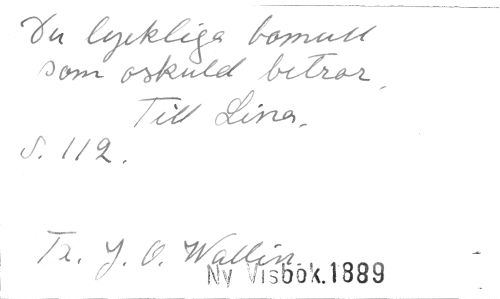 Du lyckliga bomull
som oskuld betror,
Till Lina.
S. 112.
Tx. J. O. Wallin.
Ny Visbok.1889